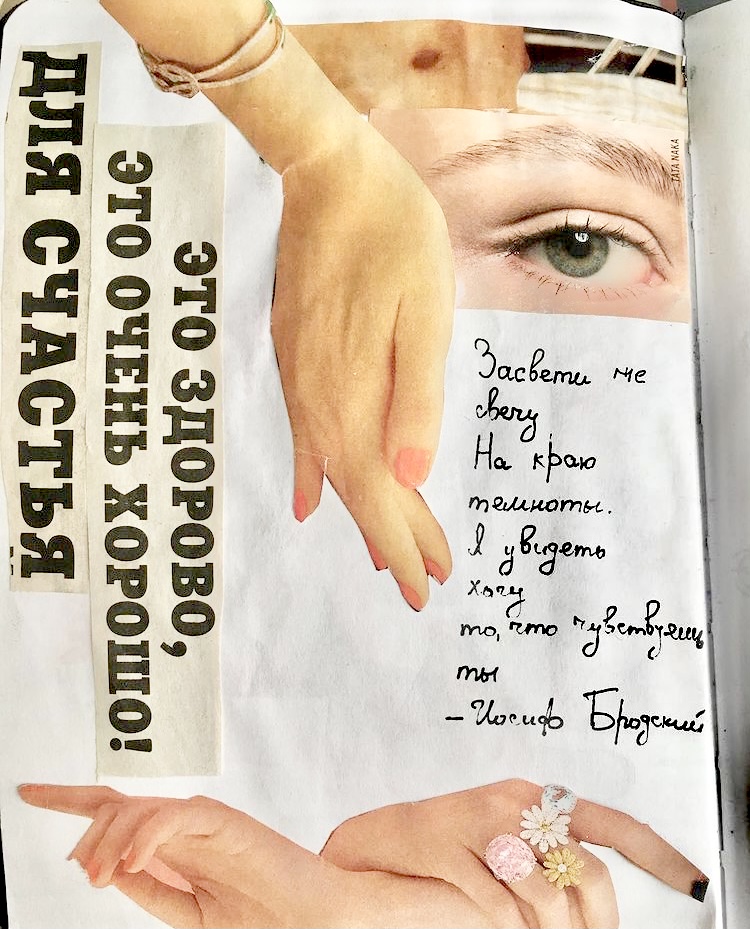 ДЛЯ СЧАСТЬЯ
ЭТО ЗДОРОВО,
ЭТО ОЧЕНЬ ХОРОШО!
TATA NAKA
Засвети же
свечу
На краю
темноты.
Я увидеть
хочу
то, что чувствуешь
ты
– Иосиф Бродский